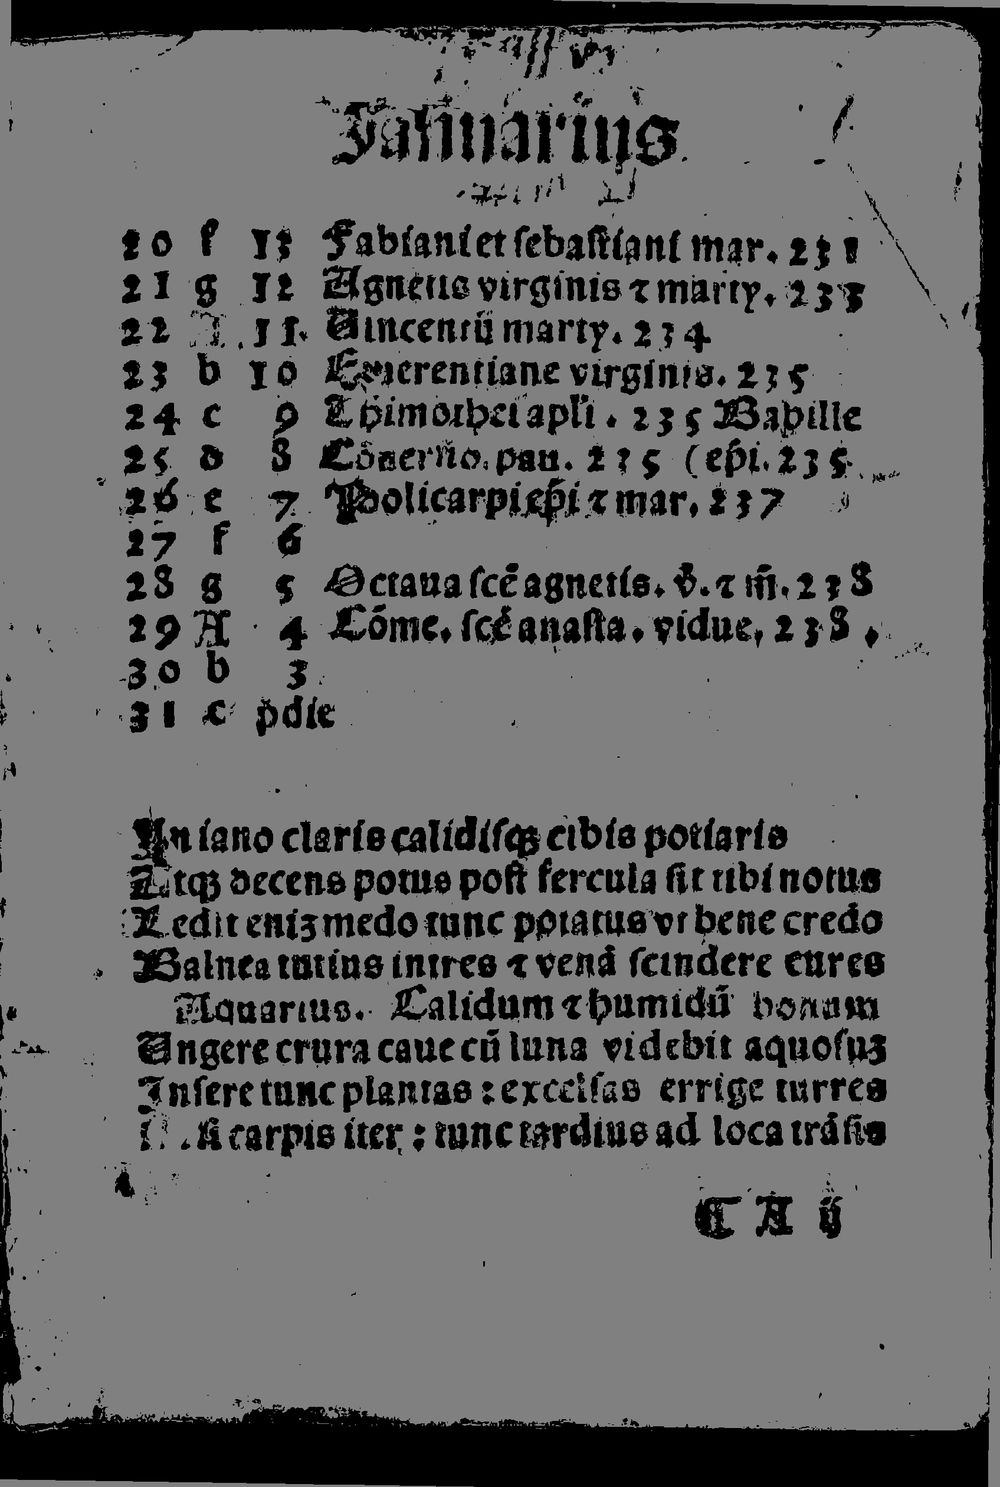 Januarius
20 f 13 Fabiani et sebastiani mar. 231
21 g 12 Agnetis virginis ⁊ marty. 233
22 A 11. Uincentii marty. 234
23 b 10 Emerentiane virginis. 235
24 c 9 Thimothei apľi. 235 Babille
25 d 8 Cōuersio. pau. 235 (ep̄i. 235
26 e 7 Policarpi ep̄i ⁊ mar. 237
27 f 6
28 g 5 Octaua scē agnetis. v̄. ⁊ m̄. 238
29 A 4 Cōme. scē anasta. vidue, 238.
30 b 3
31 c p̄die
In iano claris calidisqꝫ cibis potiaris
Atqꝫ decens potus post fercula sit tibi notus
Ledit eniꝫ medo tunc potatus vt bene credo
Balnea tutius intres ⁊ venā scindere cures
Aquarius. Calidum ⁊ humidū bonum
Ungere crura caue cū luna videbit aquosuꝫ
Insere tunc plantas: excelsas errige turres
si carpis iter: tunc tardius ad loca trāsis
C A ij